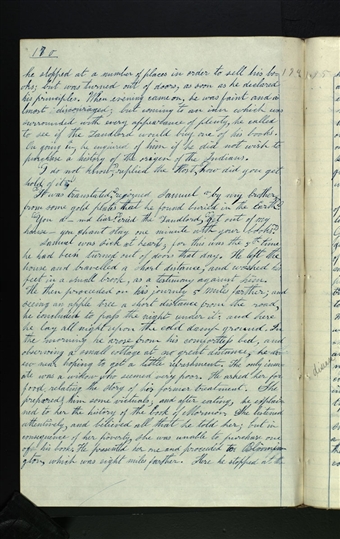 170
he stopped at a number of places in order to sell his bo-
oks; but was turned out of doors, as soon as he declared
his principles. When evening came on, he was faint and a-
lmost discouraged; but coming to an inn which was
surrounded with every appearance of plenty, he called
to see if the Landlord would buy one of his books.
On going in, he enquired of him if he did not wish to
purchase a history of the origin of the Indians.
I do not know, replied the Host, how did you get
hold of it?
It was translated, rejoined Samuel, by my brother,
from some gold plates that he found buried in the Earth.
You d—nd liar! cried the Landlord, get out of my
house— you shant stay one minute with your books.
Samuel was sick at heart, for this was the 5th time
he had been turned out of doors that day. He left the
house and travelled a short distance, and washed his
feet in a small brook, as a testimony against him.
He then proceeded on his journey 5 miles farther; and
seeing an apple tree a short distance from the road,
he concluded to pass the night under it; and here
he lay all night upon the cold damp ground. In
the morning he arose from his comfortless bed, and
observing a small cottage at no great distance, he dr-
ew near hoping to get a little refreshment. The only inm-
ate was a widow, who seemed very poor. He asked her for
food, relating the story of his former treatment. She
prepared him some victuals, and after eating, he explai-
ned to her the history of the book of Mormon. She listened
attentively, and believed all that he told her; but in
consequence of her poverty, she was unable to purchase one
of his books. He presented her one and proceeded to Bloomin-
gton, which was eight miles farther. Here he stopped at the